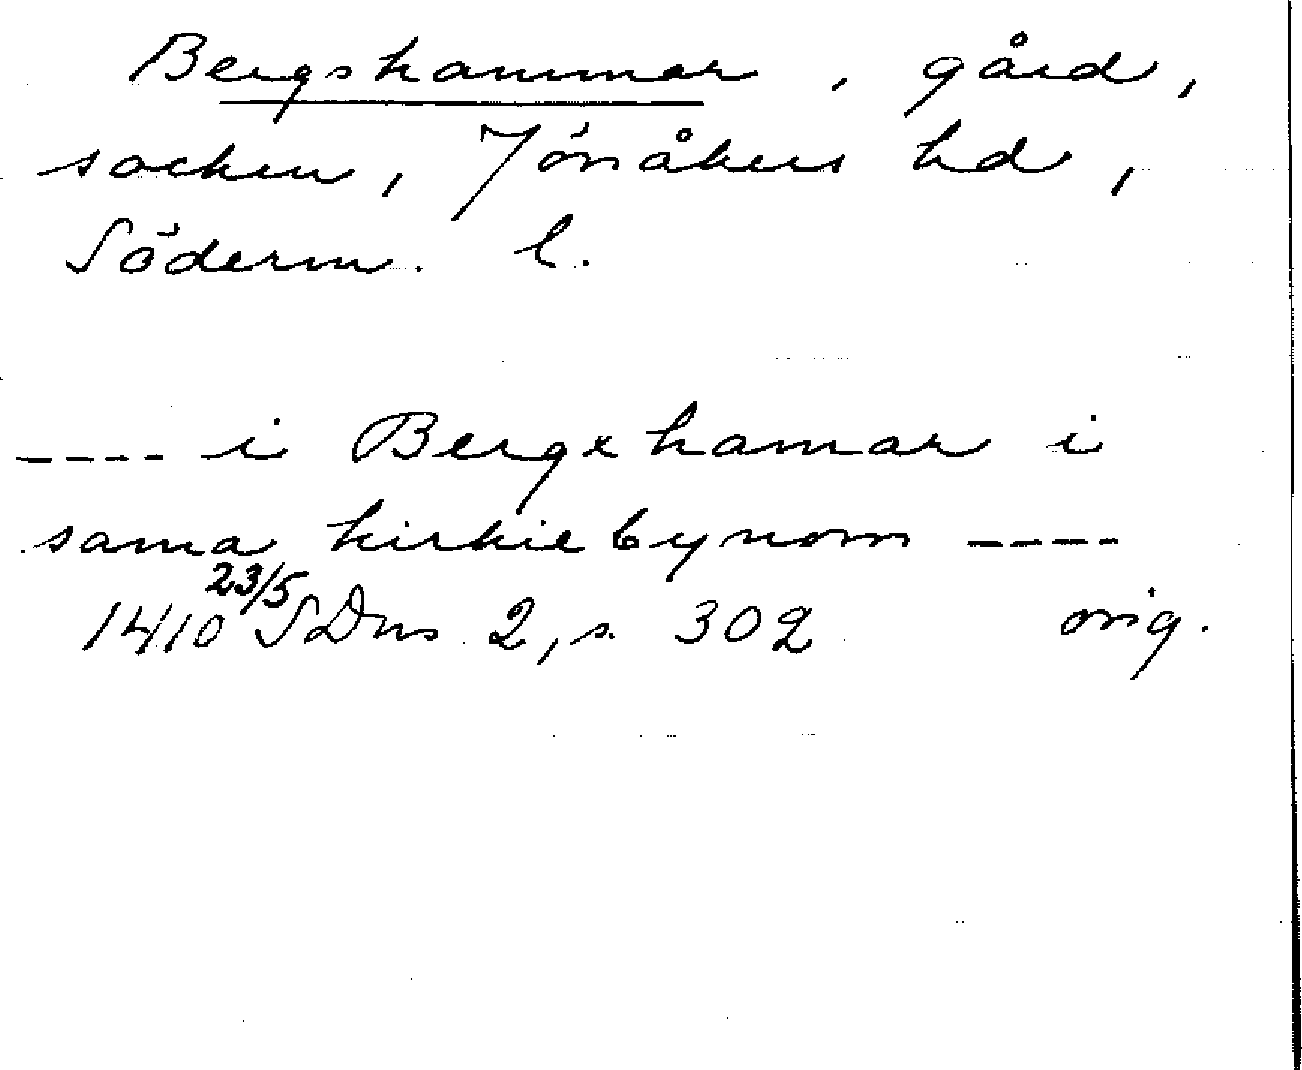 Bergshammar, gård,
socken, Jönåkers hd,
Söderm. l.
---- i Bergxhamar i
sama kirkiebynom ----
1410 23/5 SDns 2, s. 302 orig.